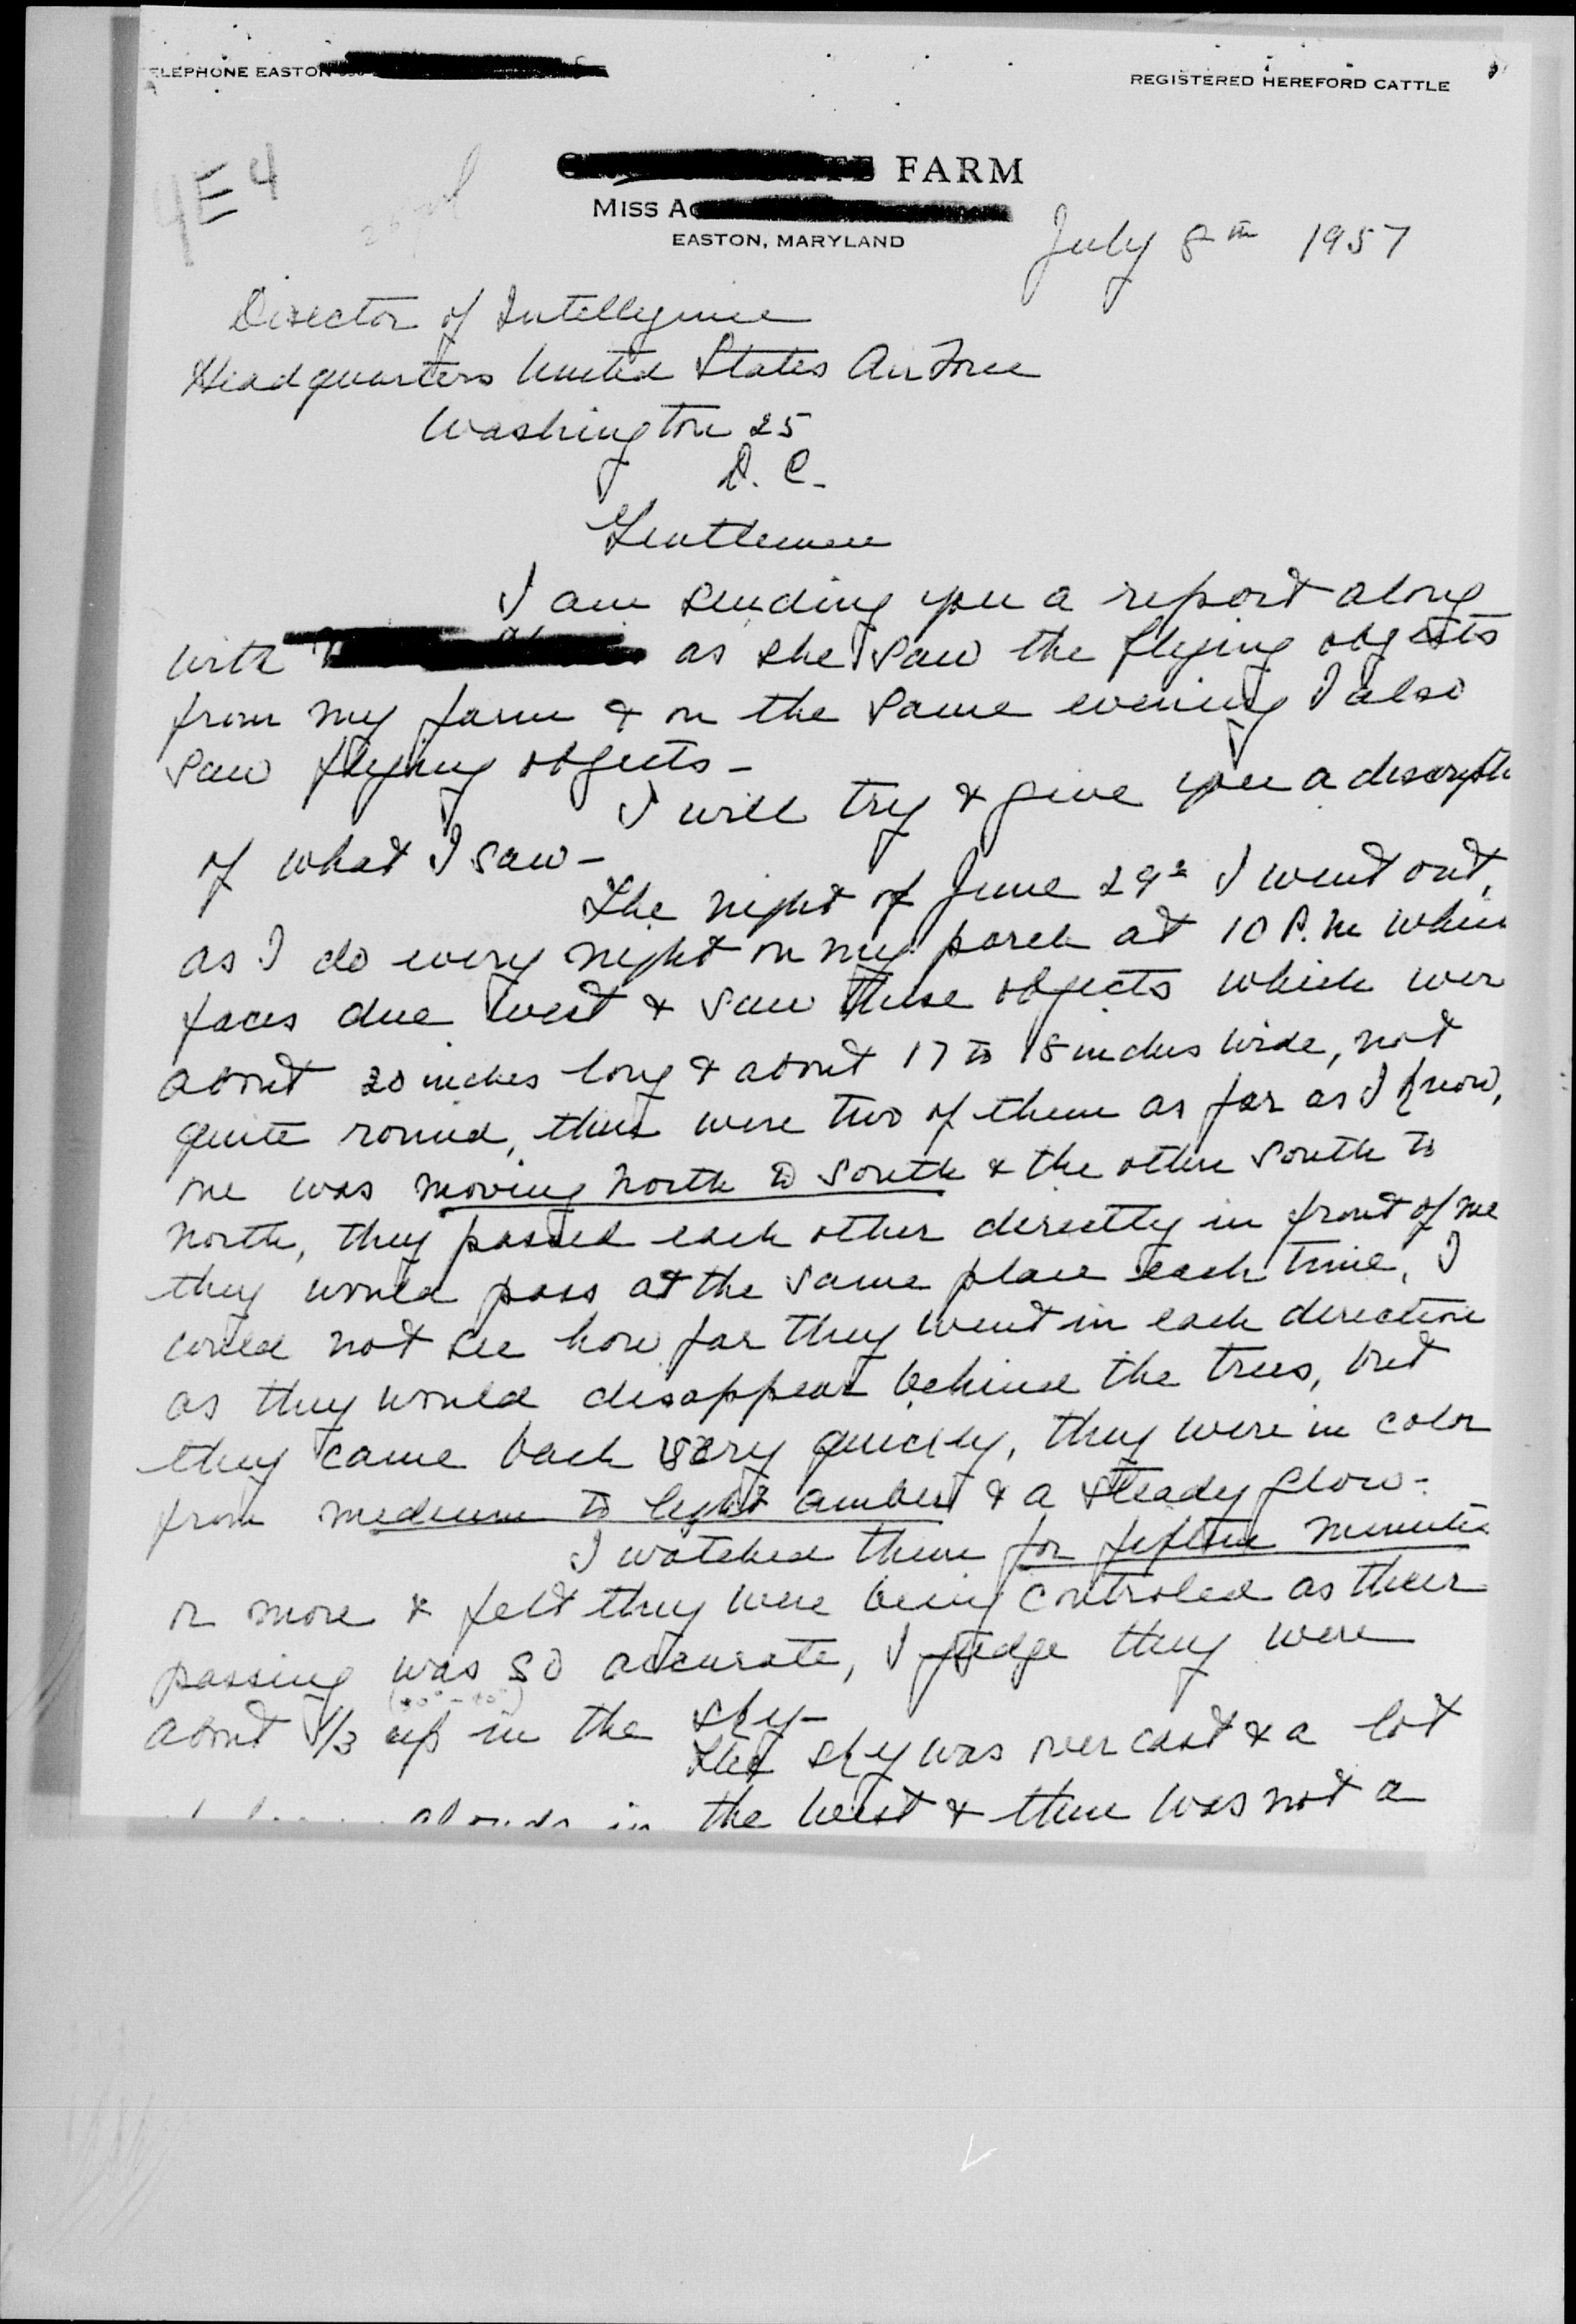 TELEPHONE EASTON
REGISTERED HEREFORD CATTLE
4E4
FARM
MISS A
EASTON, MARYLAND
July 8th 1957
Director of Intellegence
Headquarters United States Air Force
Washington 25
D. C.
Gentlemen
I am sending you a report along
with as she saw the flying objects
from my farm & on the same evening I also
saw flying objects -
I will try & give you a descripti
of what I saw -
The night of June 29th I went out,
as I do every night on my porch at 10 P.M which
faces due west & saw these objects which wer
about 20 inches long & about 17 to 18 inches wide, not
quite round, there were two of them as far as I know,
one was moving north to south & the other south to
north, they passed each other directly in front of me
they would pass at the same place each time, I
could not see how far they went in each direction
as they would disappear behind the trees, but
they came back very quickly, they were in color
from medium to light amber & a steady glow -
I watched them for fifteen minutes
or more & felt they were being controled as their
passing was so accurate, I judge they were
about 1/3 up in the sky -
The sky was over cast & a lot
clouds in the west & there was not a